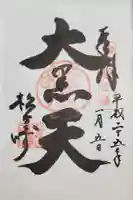 奉拝
大黒天
平成二十五年
一月五日
松ヶ崎